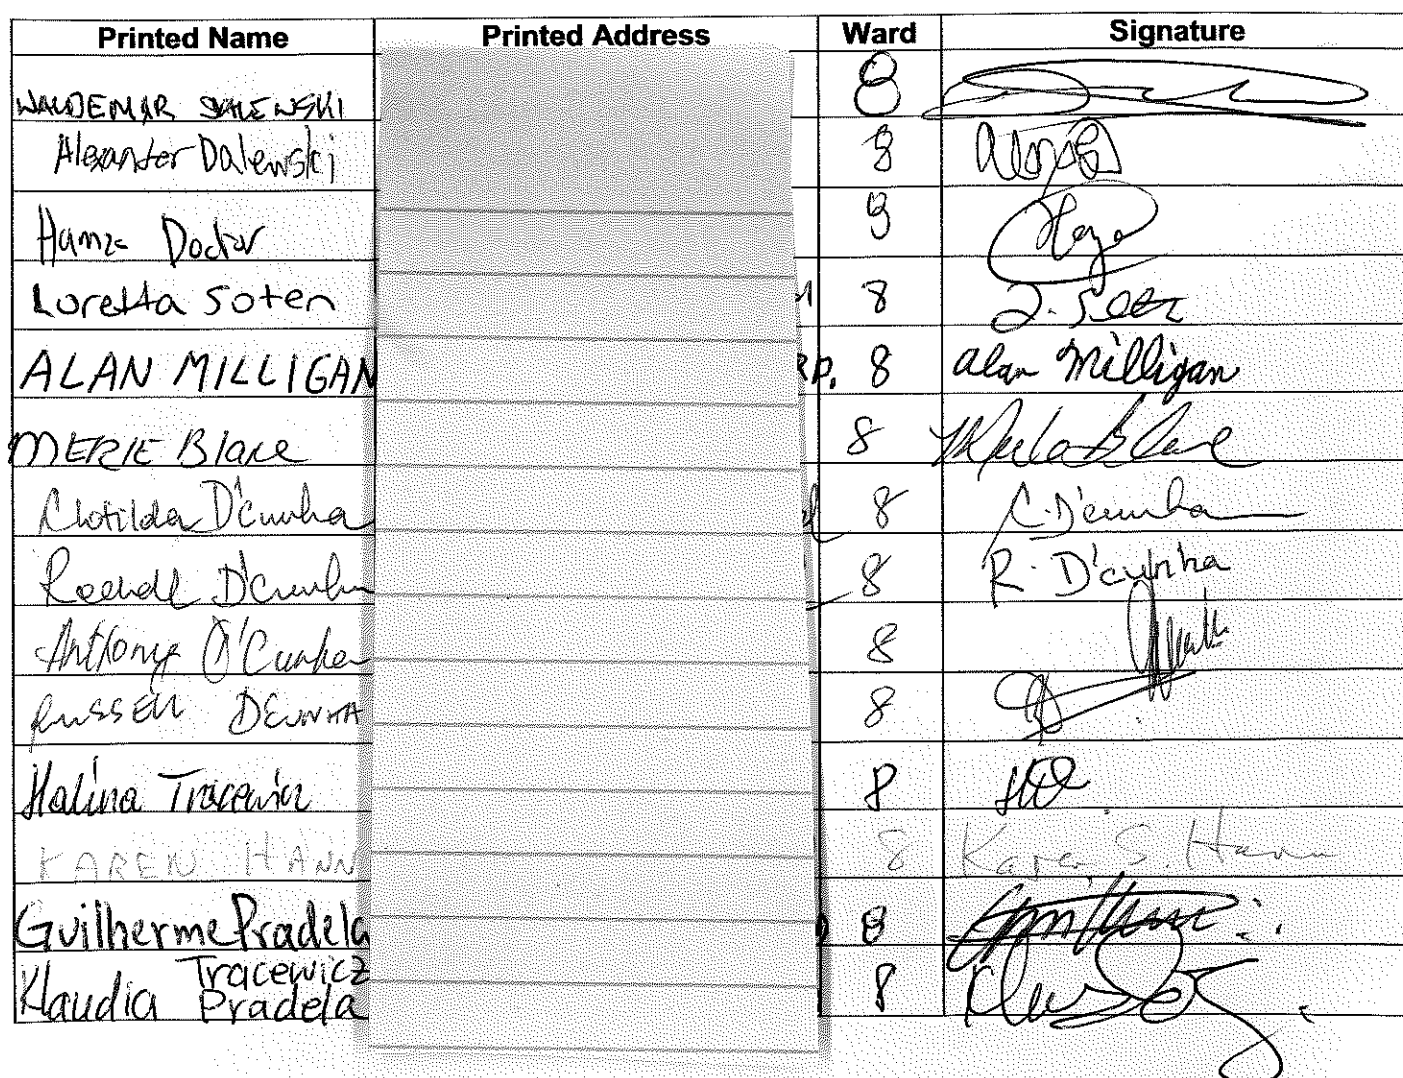 Printed Name Printed Address Ward Signature
WALDEMAR 8
Alexander Dalewski 8
Hamza Doctor 8
Loretta Soten 8 L. Soten
ALAN MILLIGAN RD. 8 Alan Milligan
MERLE Blake 8
Clotilda D'Cunha 8 C. D'cunha
D'Cunha 8 R. D'cunha
Anthony D'Cunha 8
RUSSELL DCUNHA 8
Halina Tracewicz 8
KAREN HANN 8 Karen S. Hann
Guilherme Pradela 8
Klaudia Tracewicz Pradela 8